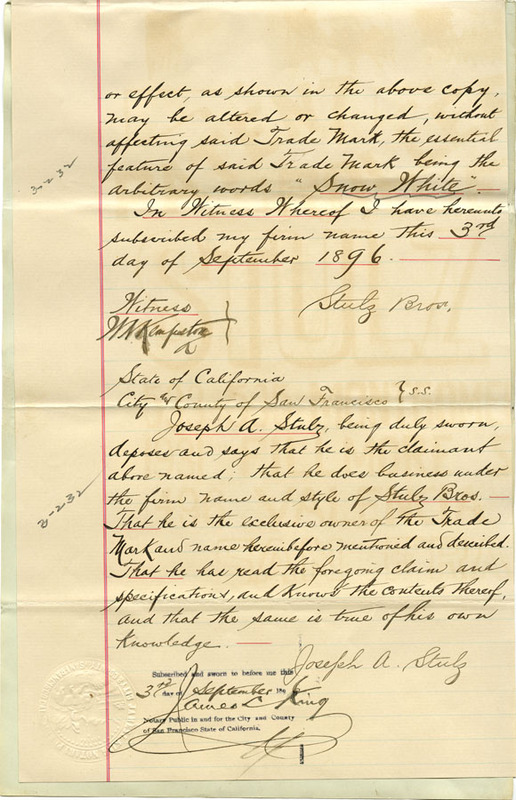 or effect, as shown in the above copy,
may be altered or changed, without
affecting said Trade Mark, the essential
feature of said Trade Mark being the
arbitrary words "Snow White".
In Witness Whereof I have hereunto
subscribed my firm name this 3rd
day of September 1896.
Witness
Stulz Bros.
State of California
City & County of San Francisco } s.s.
Joseph A. Stulz, being duly sworn,
deposes and says that he is the claimant
above named; that he does business under
the firm name and style of Stulz Bros.
That he is the exclusive owner of the Trade
Mark and name hereinbefore mentioned and described.
That he has read the foregoing claim and
specifications, and knows the contents thereof,
and that the same is true of his own
knowledge.
Joseph A. Stulz
Subscribed and sworn to before me this
3rd day of September 189
James L. King
Notary Public in and for the City and County
of San Francisco State of California.
3-2-32
3-2-32